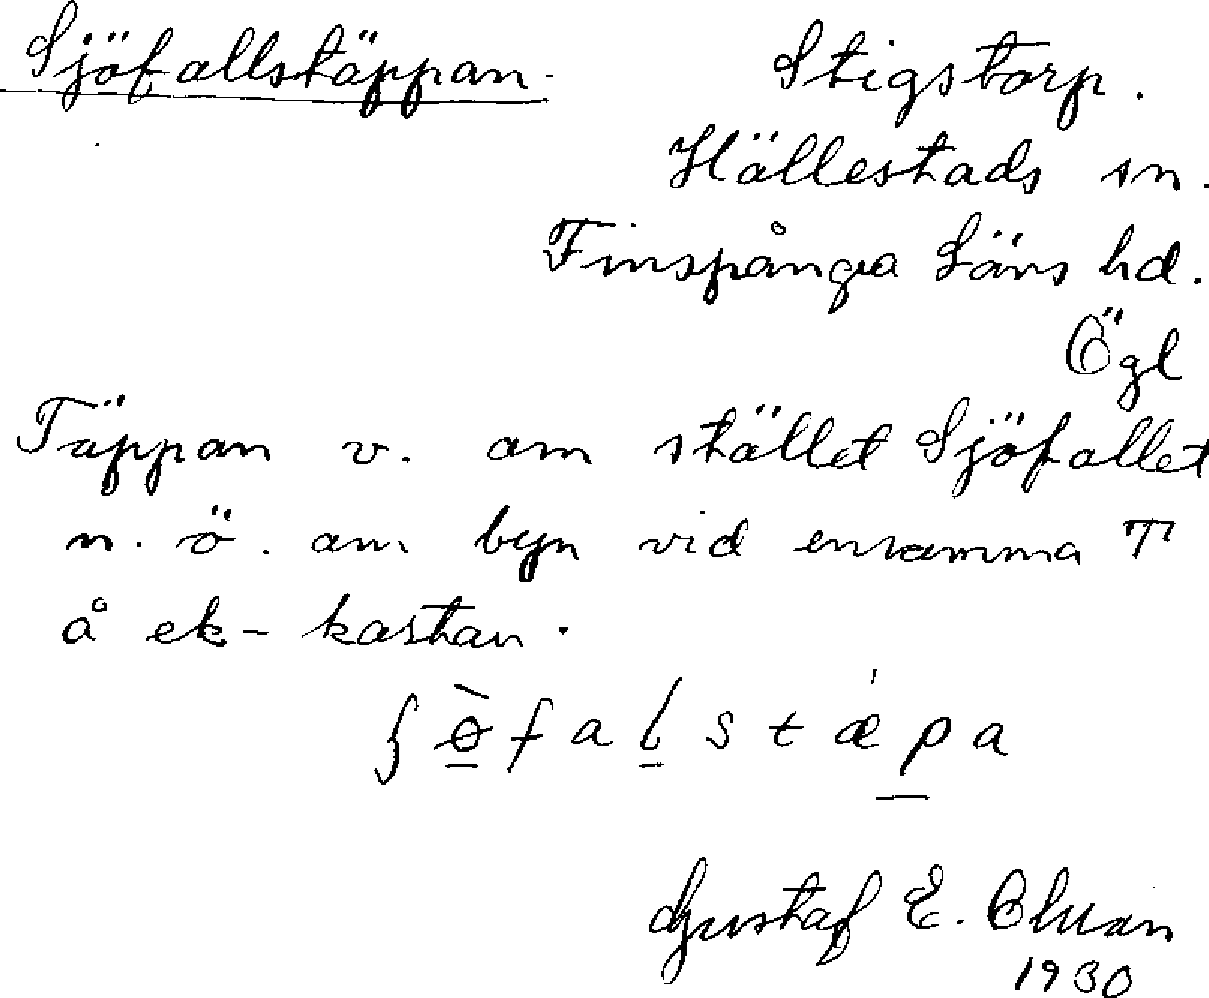 Sjöfallstäppan
Stigstorp.
Hällestads sn.
Finspånga Läns hd.
Ögl
Täppan v. om stället Sjöfallet
n. ö. om byn vid ensamma T
å ek-kastan.
Gustaf E.
1930